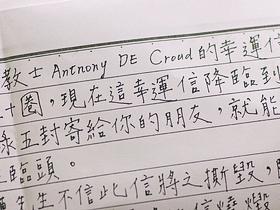 教士 Antnony DE Croud的幸運信
十圈，現在這幸運信降臨到
五封寄給你的朋友，就能
臨頭。
先生不信此信將之撕毀，